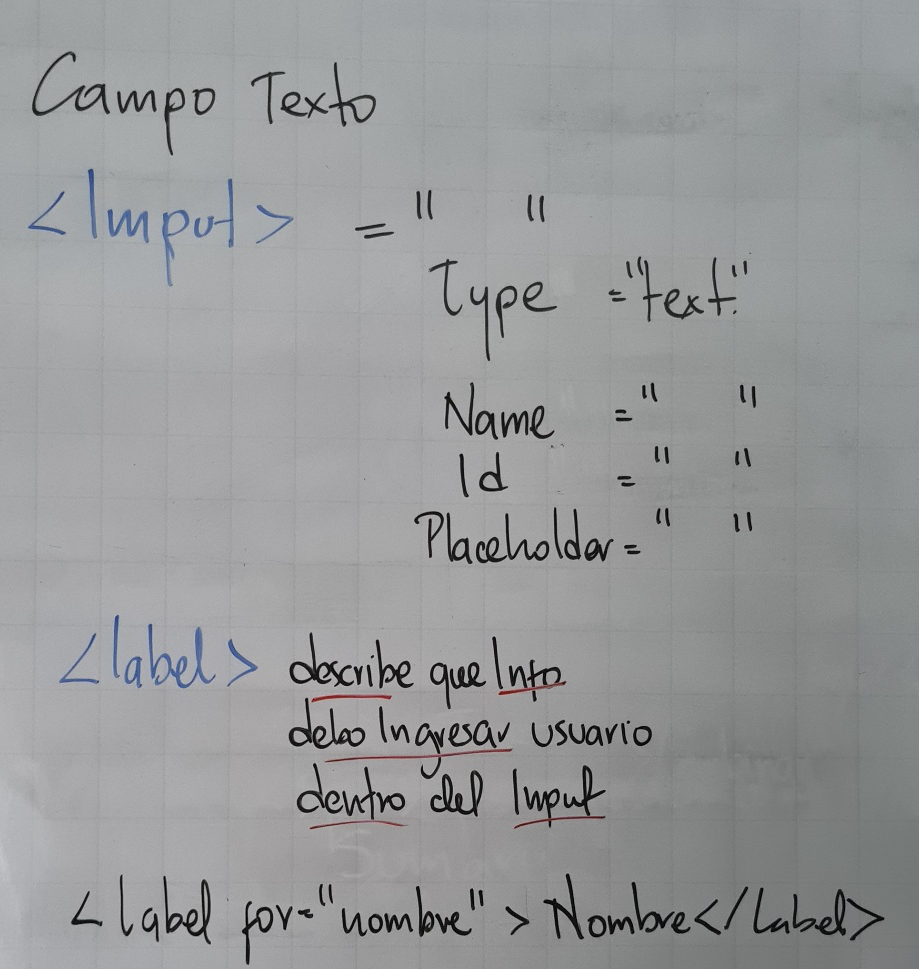 Campo Texto
<Imput> = "   "
Type = "text"
Name = "   "
Id = "   "
Placeholder = "   "
<label> describe que Info
debo Ingresar usuario
dentro del Input
<label for="nombre"> Nombre</label>